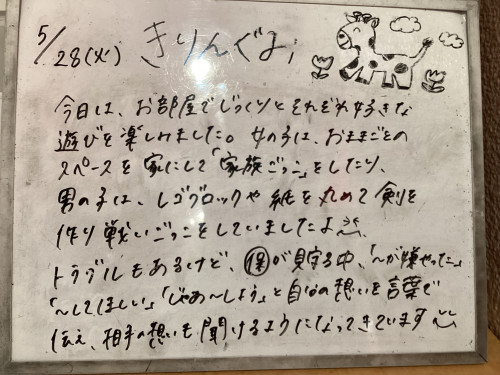 5/28(火) きりんぐみ
今日は、お部屋でじっくりとそれぞれ好きな
遊びを楽しみました。女の子は、おままごとの
スペースを家にして「家族ごっこ」をしたり、
男の子は、レゴブロックや紙を丸めて剣を
作り戦いごっこをしていましたよ
トラブルもあるけど、保が見守る中、「〜が嫌やった」
「〜してほしい」「じゃあ〜しよう」と自分の想いを言葉で
伝え、相手の想いも聞けるようになってきています